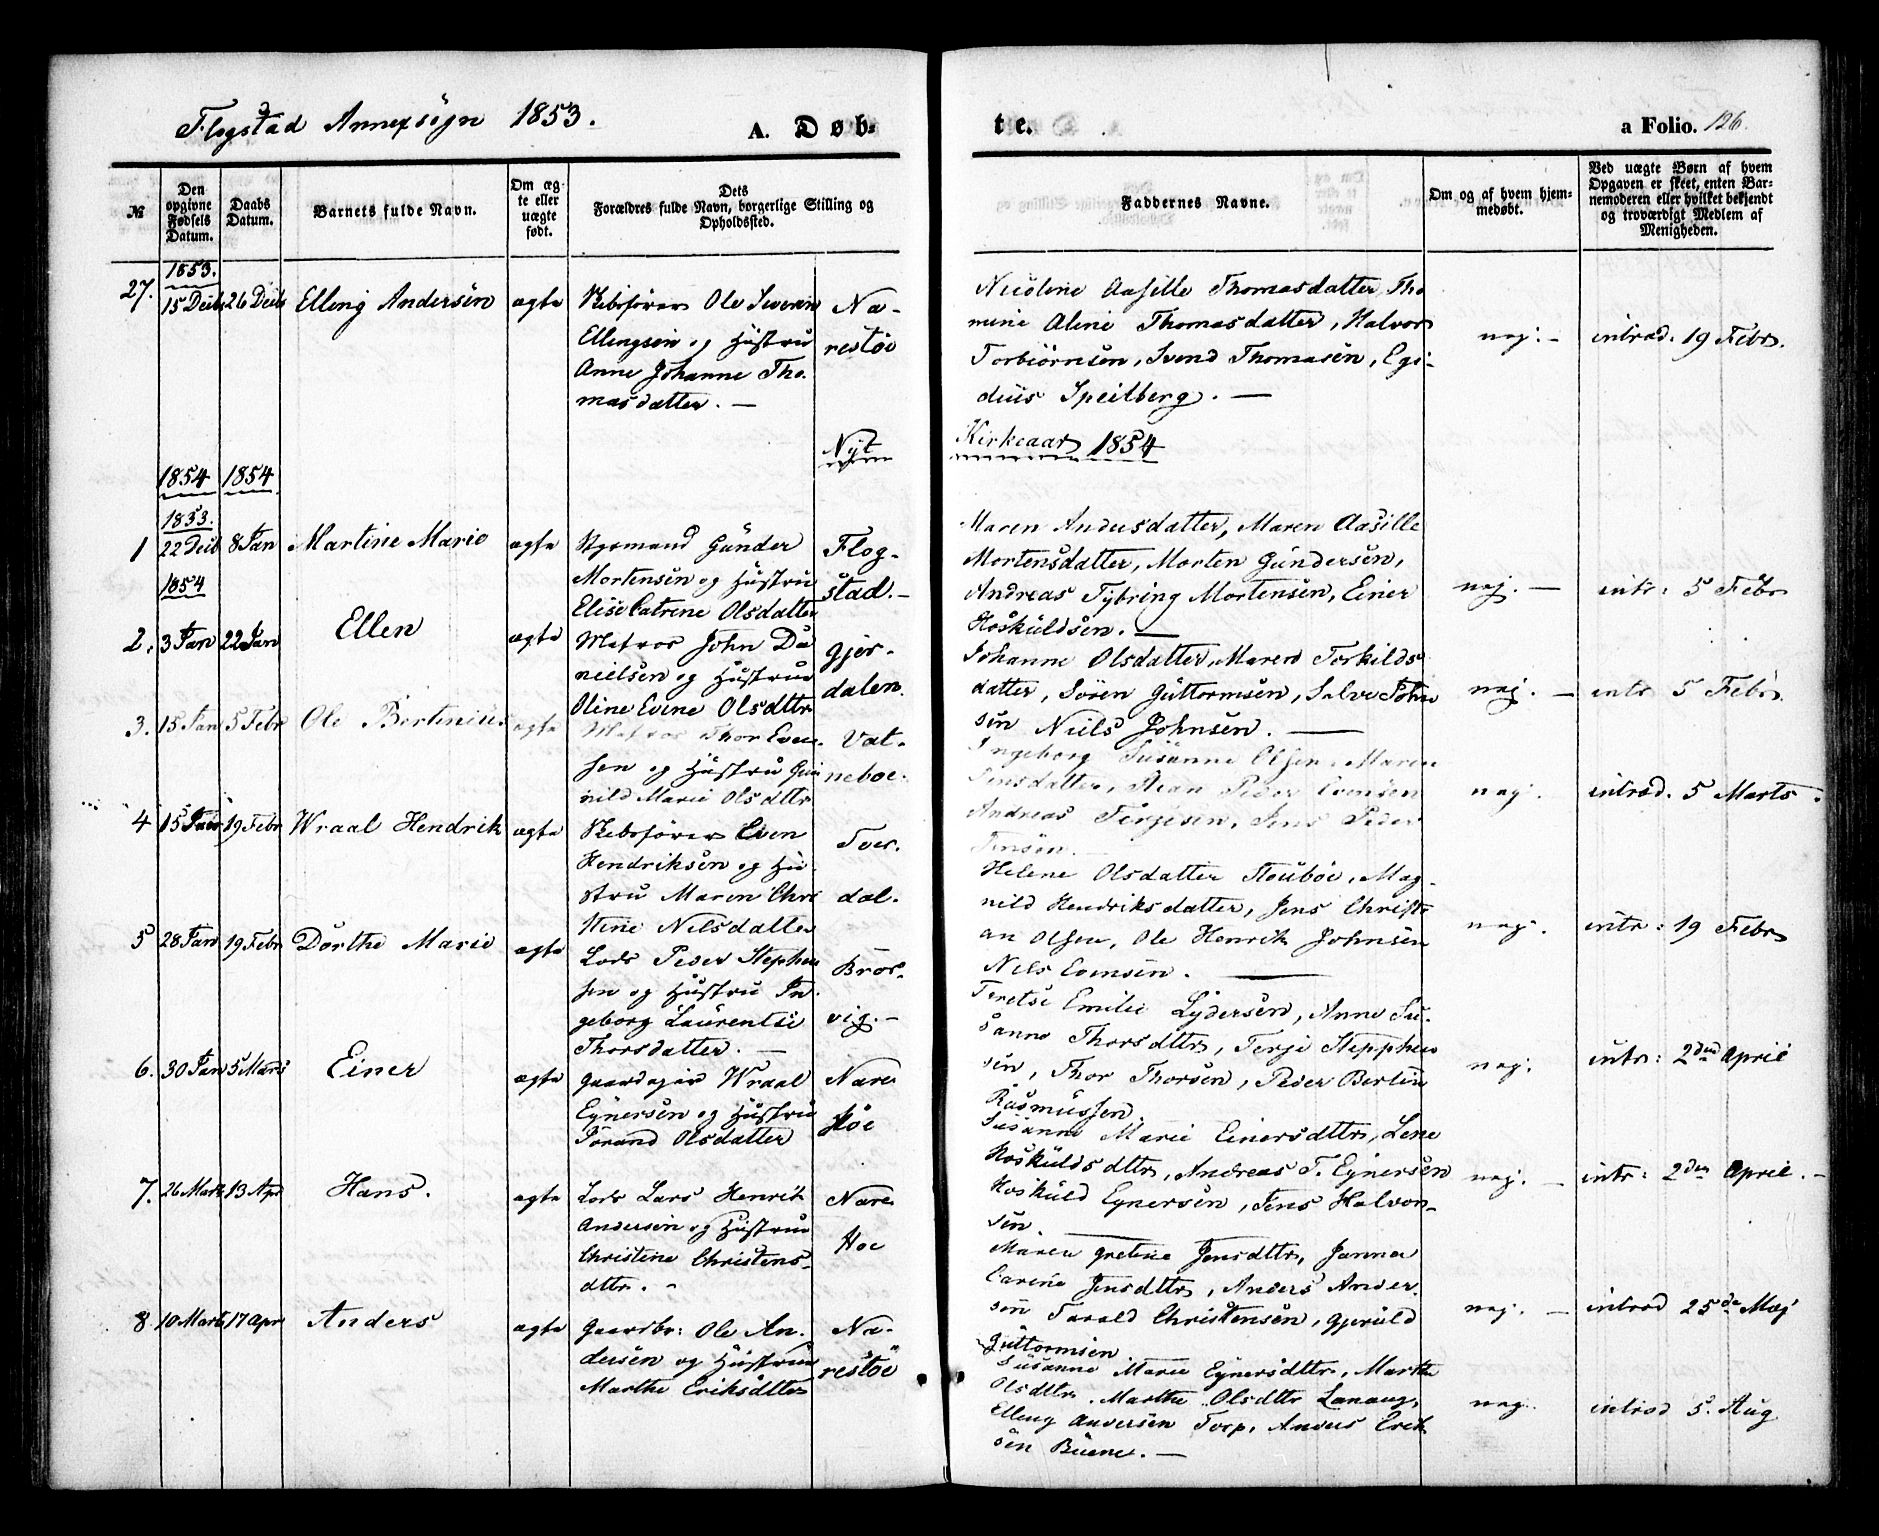 Flogstad Annexsogn 1853.
A. Døb-
te.
a Folio. 126.
№
Den opgivne Fødsels Datum.
Daabs Datum.
Barnets fulde Navn.
Om ægte eller uægte født.
Dets Forældres fulde Navn, borgerlige Stilling og Opholdssted.
Faddernes Navne.
Om og af hvem hjemmedøbt.
Ved uægte Børn af hvem Opgaven er skeet, enten Barnemoderen eller hvilket bekjendt og troværdigt Medlem af Menigheden.
1853.
27. 15 Decb 26 Decb Elleng Andersen ægte
Skibsfører Ole Severin
Ellengsen og Hustru
Anne Johanne Tho-
masdatter. —
Na-
restöe
Nicoline Aasille Thomasdatter, Tho
mine Aline Thomasdatter, Halvor
Torbiörnsen, Svend Thomasen, Egi-
dius Speilberg. —
nej. —
introd. 19 Febr.
Nyt
Kirkeaar 1854
1854 1854
1853.
1 22 Decb 8 Jan Martine Marie ægte
Styrmand Gunder
Mortensen og Hustru
Elise Catrine Olsdatter
Flog-
stad. —
Maren Andersdatter, Maren Aasille
Mortensdatter, Morten Gundersen,
Andreas Tybring Mortensen, Einer
Hoskuldsen. —
nej. —
intr: 5 Febr
1854
2. 3 Jan 22 Jan Ellen ægte
Matros John Da
nielsen og Hustru
Oline Evine Olsdttr
Gjer-
dalen.
Johanne Olsdatter, Maren Torkilds
datter, Sören Guttormsen, Salve John
sen Niels Johnsen. —
nej. —
intr 5 Febr.
3. 15 Jan 5 Febr Ole Bertinius ægte
Matros Thor Even-
sen og Hustru Gun
nild Marie Olsdttr
Vat-
neboe.
Ingeborg Susanne Olsen, Maren
Jensdatter, Peder Evensen
Andreas Terjesen, Jens Peder
Jensen. —
nej.
introd. 5 Marts.
4 15 Jan 19 Febr Wraal Hendrik ægte
Skibsfører Even
Hendriksen og Hu
stru Maren Chri
stine Nilsdatter
Tver-
dal.
Helene Olsdatter Stouböe, Mag-
nild Hendriksdatter, Jens Christi
an Olsen, Ole Henrik Johnsen
Nils Evensen. —
nej.
intr: 19 Febr
5 28 Jan 19 Febr Dorthe Marie ægte
Lods Peder Stephen
sen og Hustru In-
geborg Laurentse
Thorsdatter. —
Bros-
vig. —
Teretse Emilie Lydersen, Anne Su-
sanne Thorsdttr, Terje Stepphen
sen, Thor Thorsen, Peder Bertin
Rasmussen.
nej.
intr: 2den April
6. 30 Jan 5 Marts Einer ægte
Gaardejer Wraal
Eynersen og Hustru
Jörand Olsdatter
Nare
stöe
Susanne Marie Einersdttr, Lene
Hoskuldsdttr, Andreas T. Eynersen
Hoskuld Eynersen, Jens Halvor-
sen.
nej. —
intr: 2den April. —
7. 26 Marts 13 Apr Hans. ægte
Lods Lars Henrik
Andersen og Hustru
Christine Christens-
dttr. -
Nare
stoe
Maren Gretine Jensdttr, Janna
Carine Jensdttr, Anders Ander-
sen Tarald Christensen, Gjeruld
Guttormsen
nej. —
introd 25de Maj
8 10 Marts 17 Apr Anders ægte
Gaardbr: Ole An-
dersen og Hustru
Marthe Eriksdtter
Na-
restöe
Susanne Marie Eynersdttr, Marthe
Olsdttr. Marthe Olsdttr Lanaug,
Elleng Andersen Torp, Anders Erik
sen Buene. —
nej.
introd 5. Aug